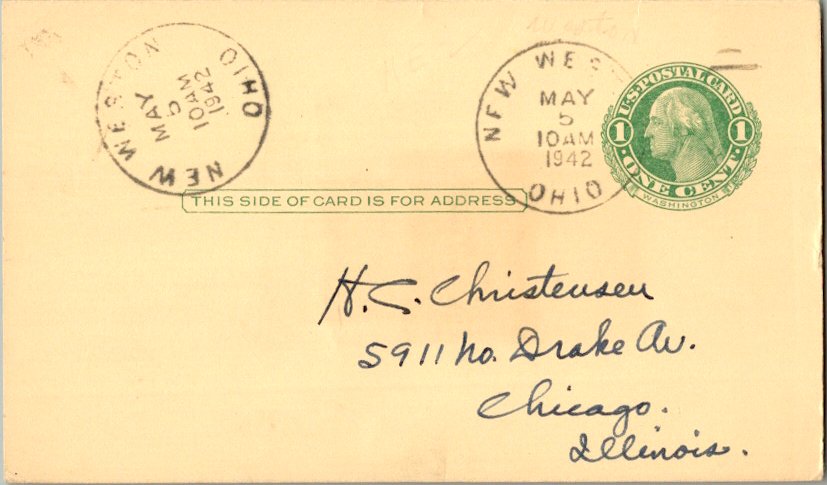 NEW WESTON
OHIO
MAY
5
10AM
1942
NEW WES
OHIO
MAY
5
10AM
1942
U.S. POSTAL CARD
1 1
ONE CENT
WASHINGTON
THIS SIDE OF CARD IS FOR ADDRESS
H. C. Christensen
5911 No. Drake Av.
Chicago.
Illinois.